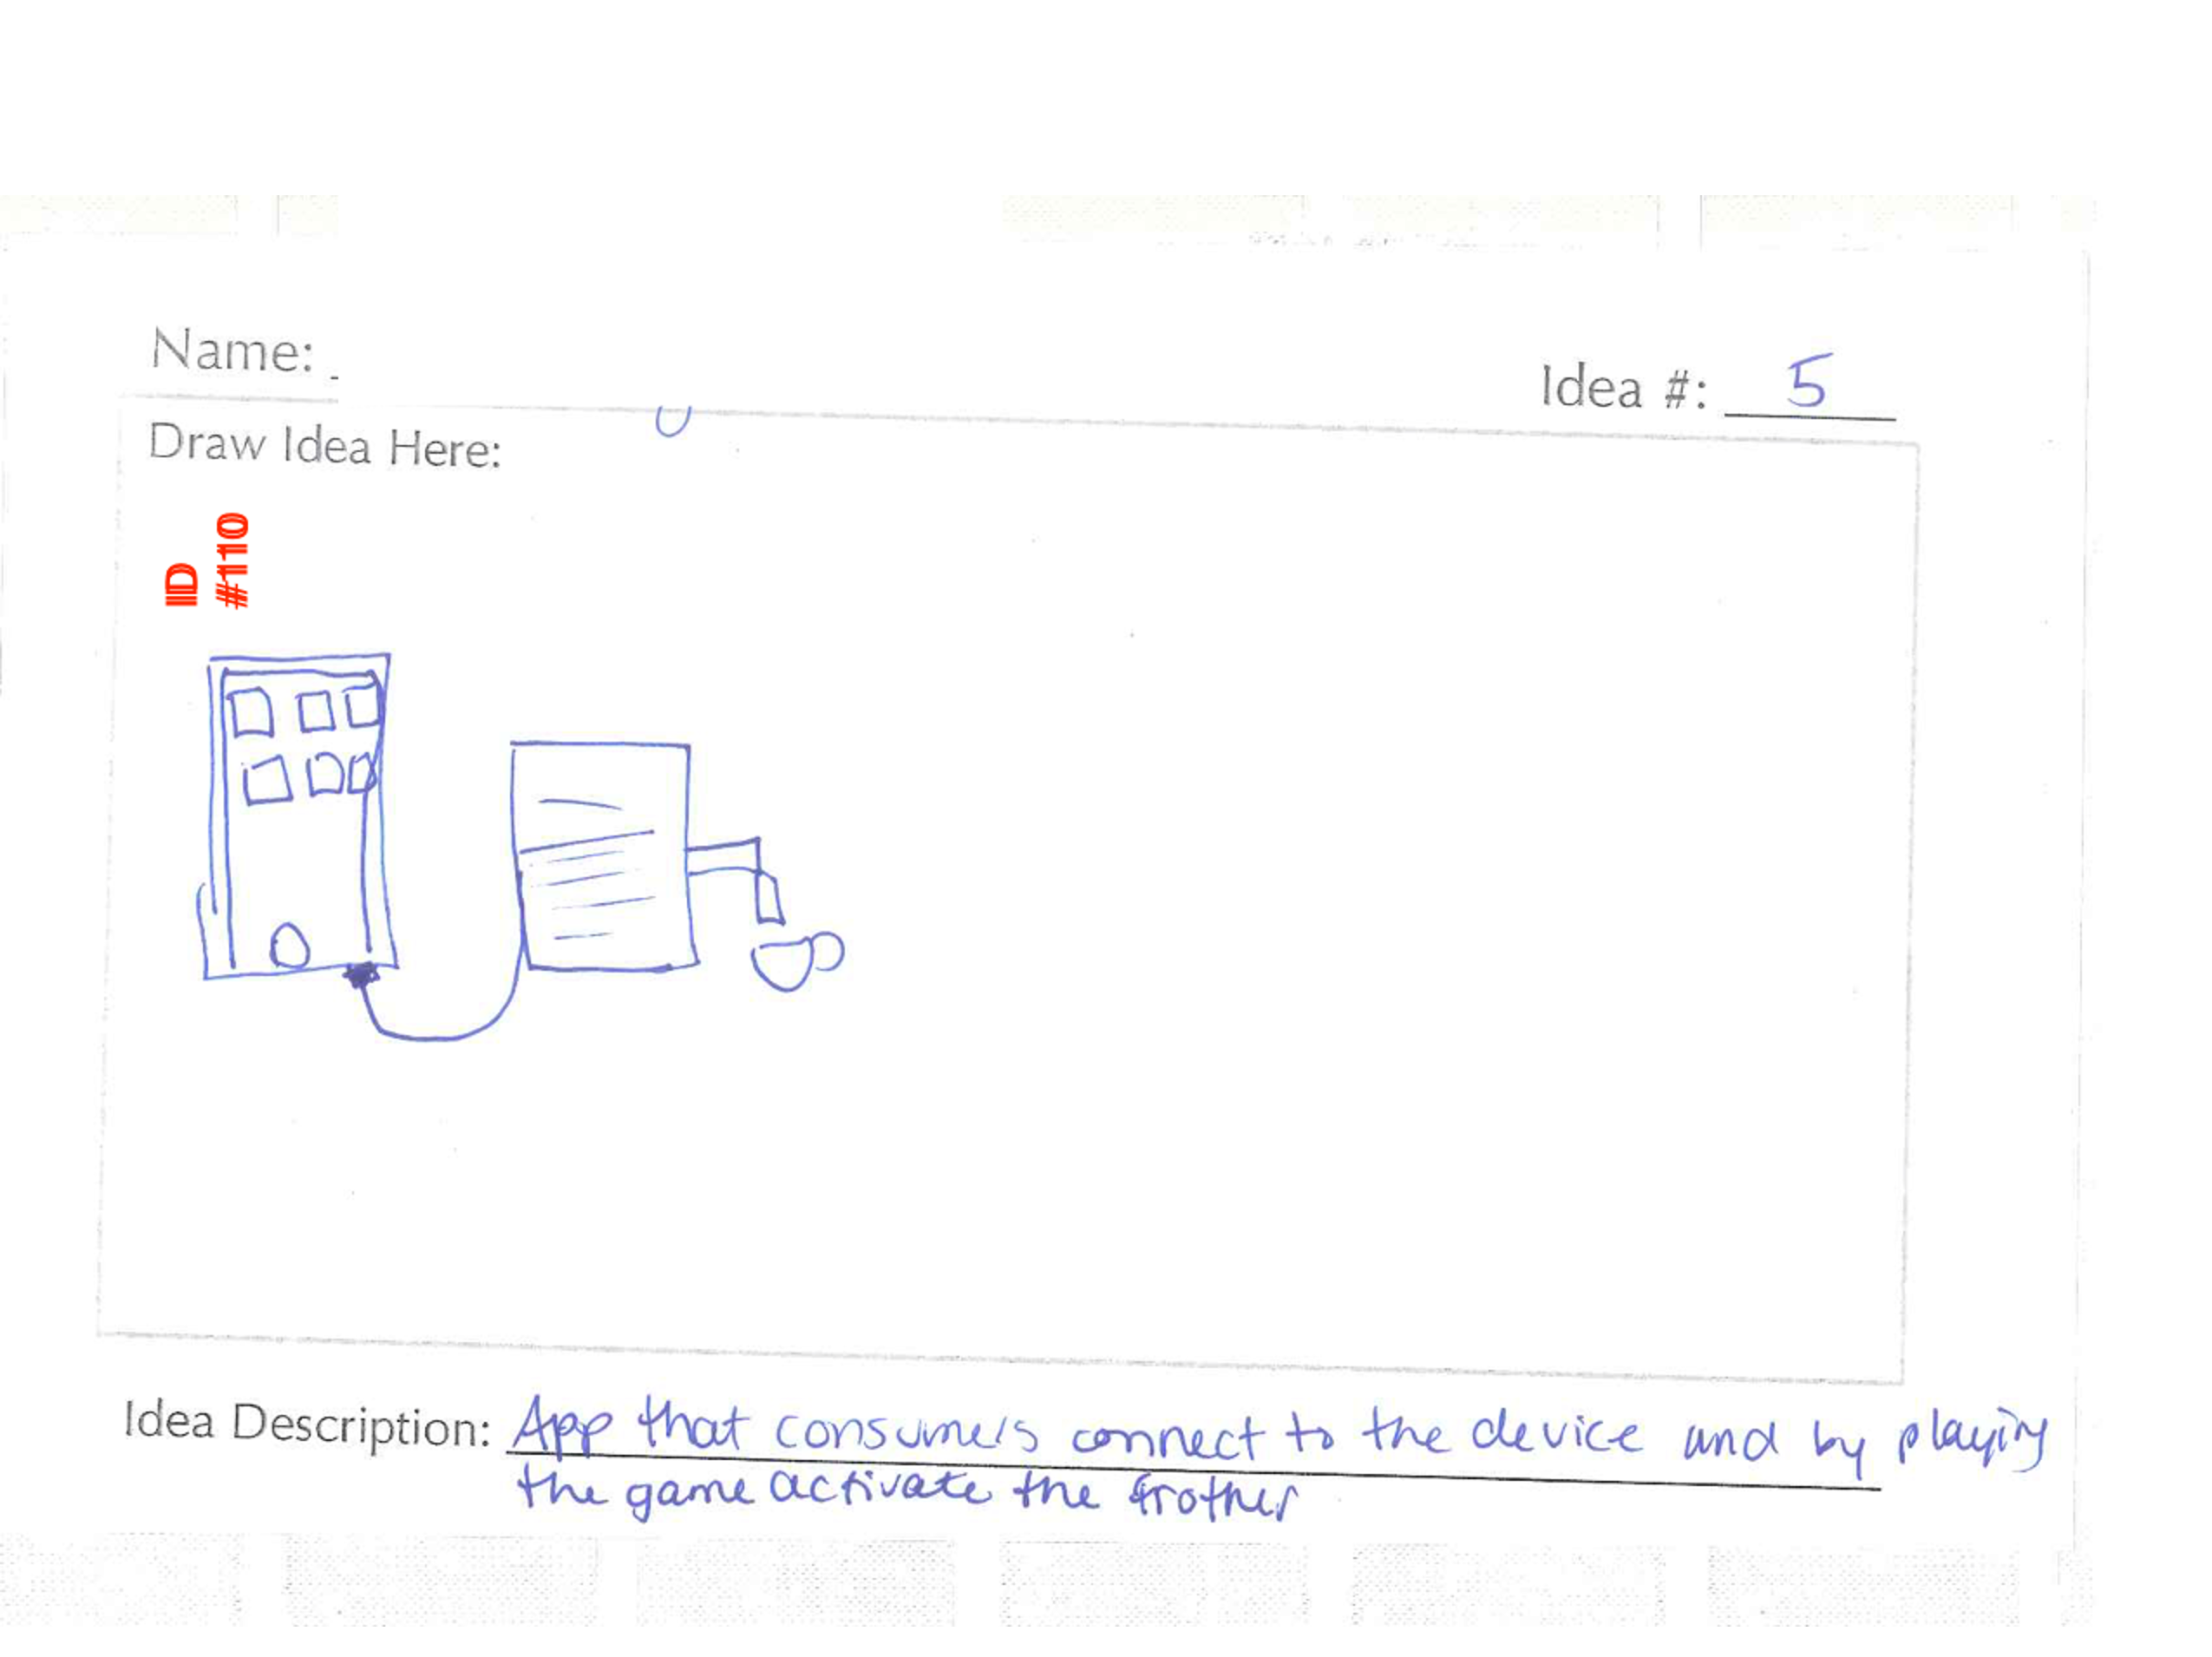 Name:
Idea #: 5
Draw Idea Here:
ID
#110
Idea Description: App that consumers connect to the device and by playing
the game activate the frother